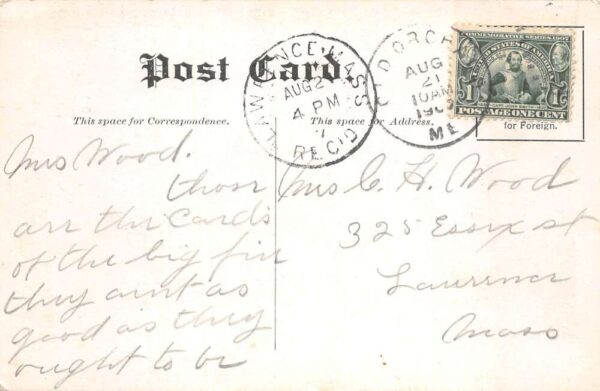 Post Card
This space for Correspondence.
This space for Address.
LAWRENCE, MASS
AUG 21
4 PM
REC'D
OLD ORCH
AUG
21
10AM
190
ME
COMMEMORATIVE SERIES 1907
UNITED STATES OF AMERICA
1 1
POSTAGE ONE CENT
for Foreign.
Mrs Wood.
those
are the Cards
of the big fire
they aint as
good as they
ought to be
Mrs C. H. Wood
325 Essex st
Lawrence
Mass